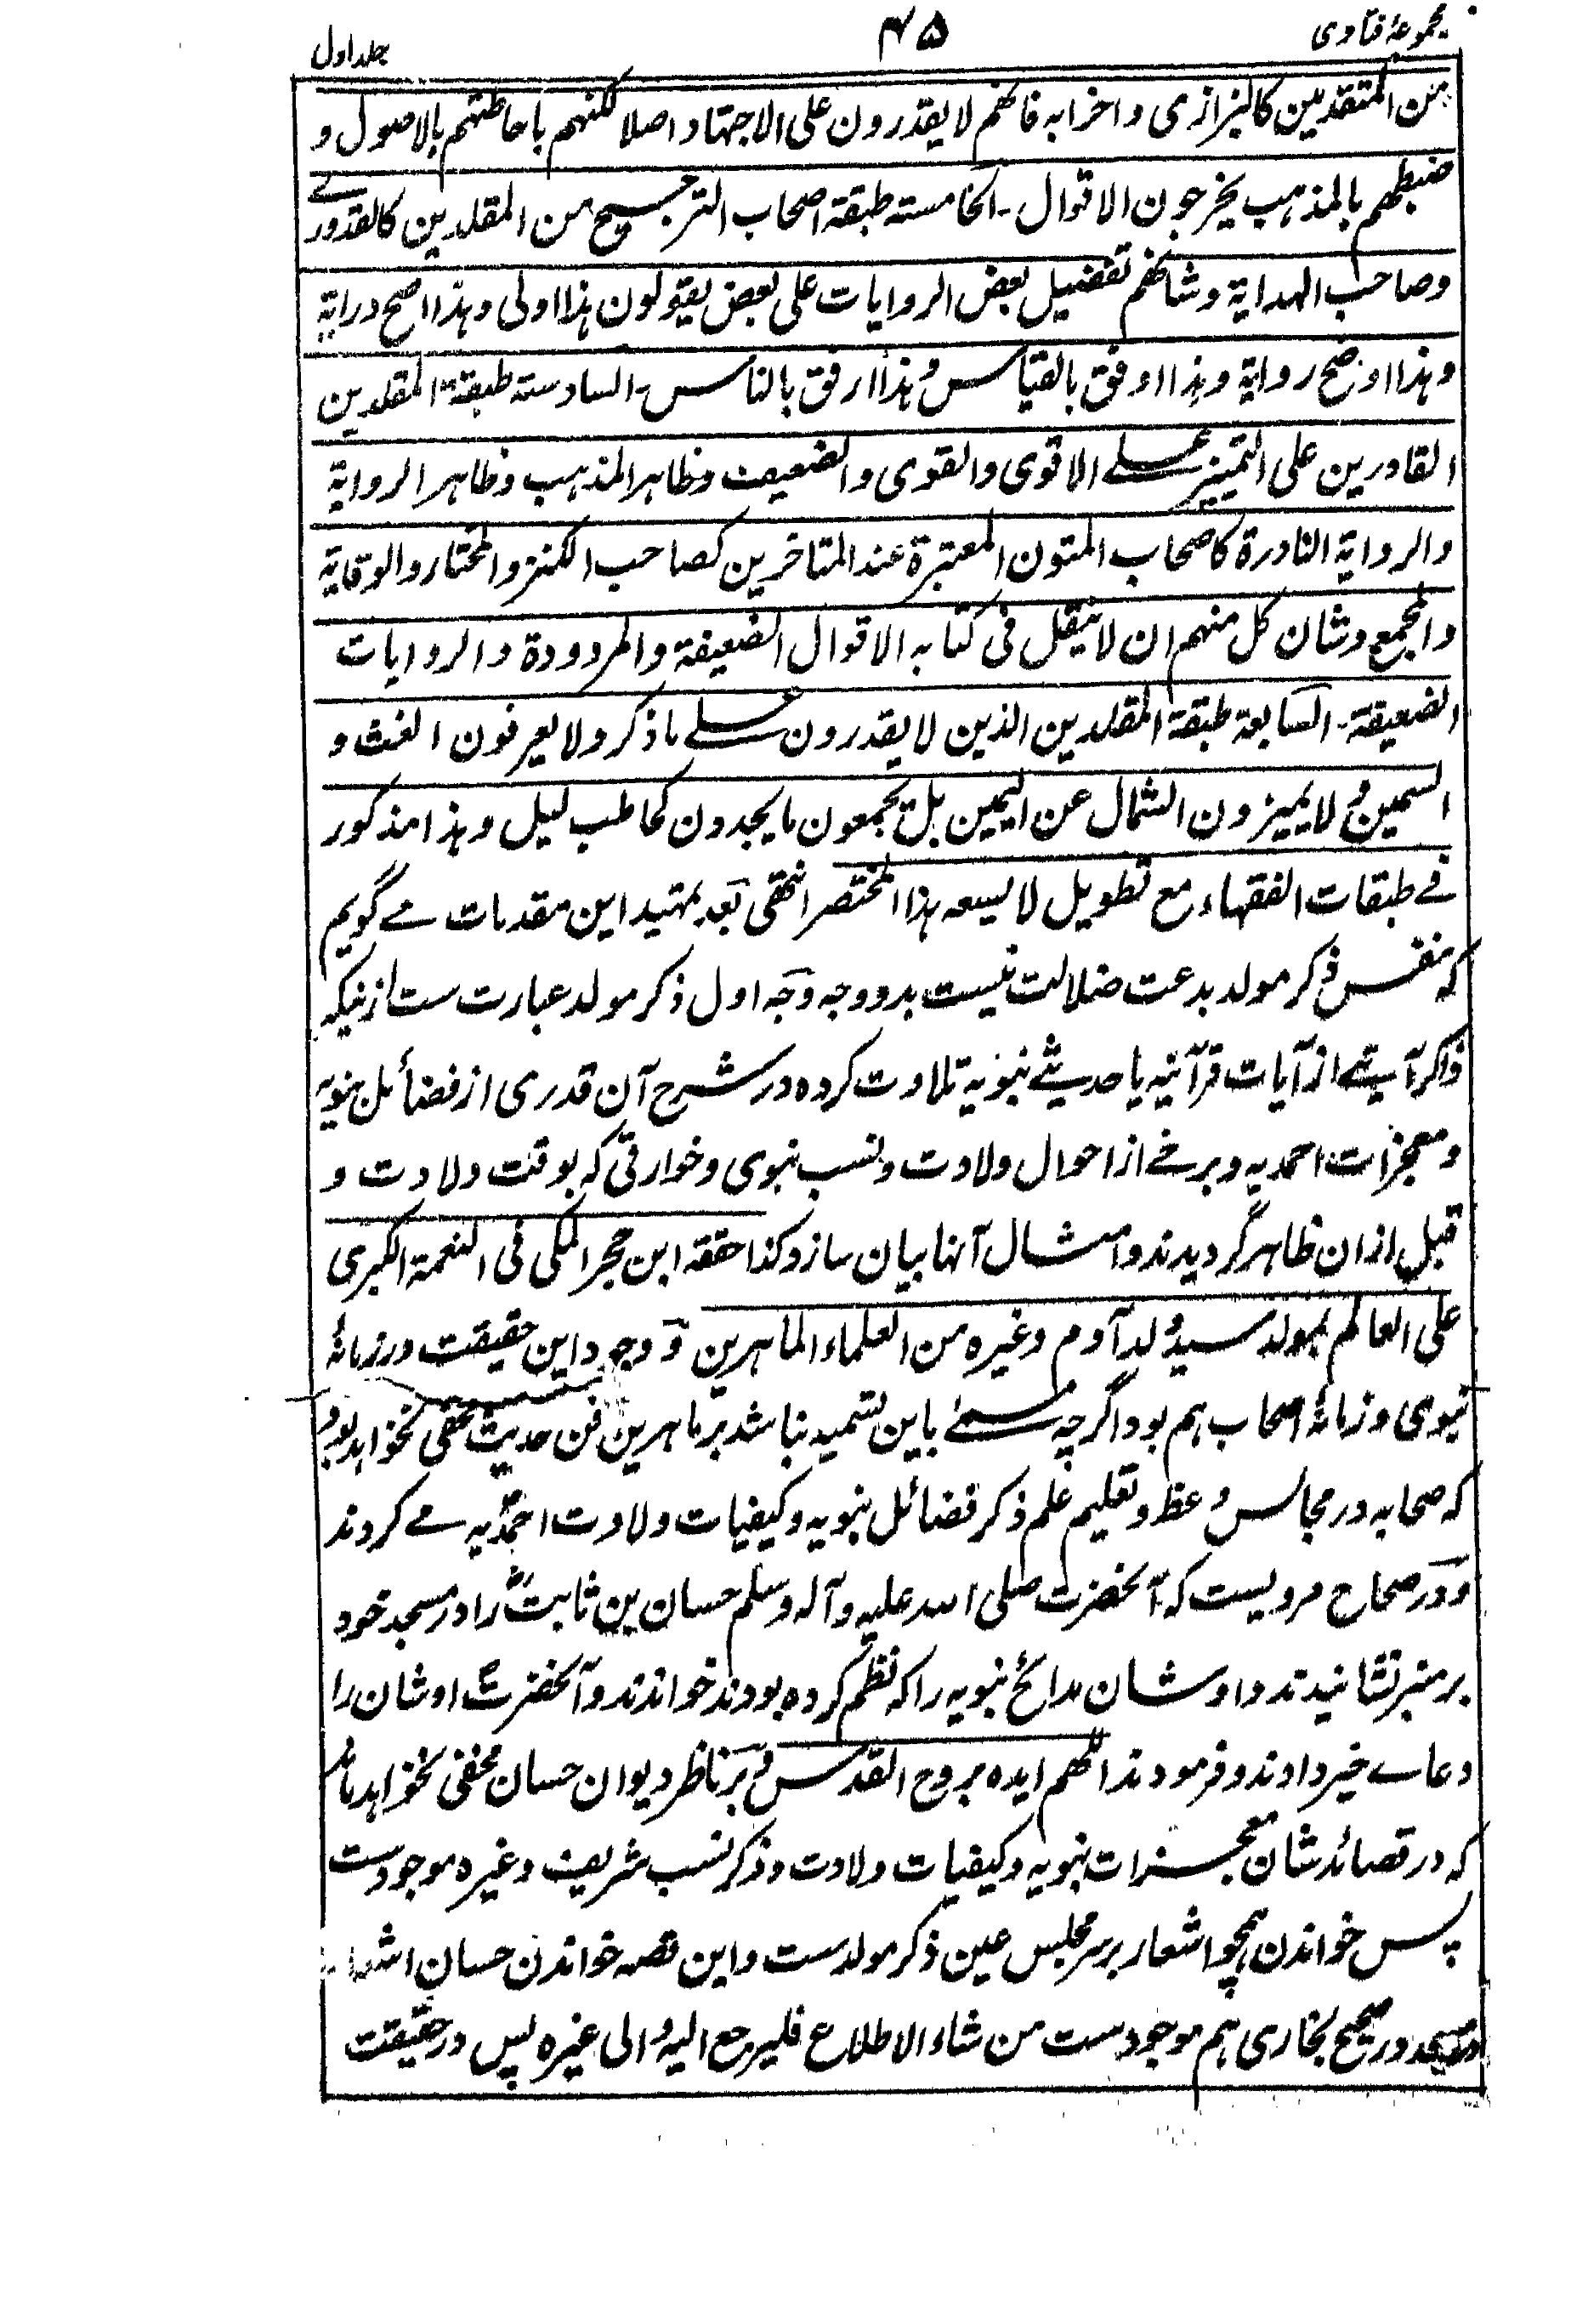 مجموعۂ فتاوی ۴۵ جلد اول
من المتقدمین کالبزازی و احزابه فانهم لا یقدرون علی الاجتهاد اصلا لکنهم باحاطتهم بالاصول و
ضبطهم بالمذہب یخرجون الاقوال۔ الخامسة طبقة اصحاب الترجیح من المقلدین کالقدورے
وصاحب الهدایة وشانهم تفضیل بعض الروایات علی بعض یقولون ہذا اولی وہذا اصح درایة
وہذا اوضح روایة وہذا اوفق بالقیاس وہذا ارفق بالناس۔ السادسة طبقة المقلدین
القادرین علی التمییز علے الاقوی والقوی والضعیف وظاہر المذہب وظاہر الروایة
والروایة النادرة کاصحاب المتون المعتبرة عند المتاخرین کصاحب الکنز والمختار والوقایة
والمجمع وشان کل منهم ان لا ینقل فی کتابه الاقوال الضعیفة والمردودة والروایات
الضعیفة۔ السابعة طبقة المقلدین الذین لا یقدرون علے ما ذکر ولا یعرفون الغث و
السمین ولا یمیزون الشمال عن الیمین بل یجمعون ما یجدون کحاطب لیل وہذا مذکور
فے طبقات الفقهاء مع تطویل لا یسعه ہذا المختصر انتهی بعد تمہید این مقدمات مے گویم
کہ نفس ذکر مولد بدعت ضلالت نیست بدو وجہ وجہ اول ذکر مولد عبارت ست ازینکہ
ذاکر آیتے از آیات قرآنیہ یا حدیثے نبویہ تلاوت کردہ در شرح آن قدری از فضائل نبویہ
ومعجزات احمدیہ وبرخے از احوال ولادت ونسب نبوی وخوارقی کہ بوقت ولادت و
قبل ازان ظاہر گردیدند وامثال آنہا بیان سازد کذا حققه ابن حجر المکی فی النعمة الکبری
علی العالم بمولد سید ولد آدم وغیره من العلماء الماہرین و وجود این حقیقت در زمانۂ
نبوی وزمانۂ اصحاب ہم بود اگرچہ مسمے باین تسمیہ نباشد بر ماہرین فن حدیث مخفی نخواہد بود
کہ صحابہ در مجالس وعظ وتعلیم علم ذکر فضائل نبویہ وکیفیات ولادت احمدیہ مے کردند
ودر صحاح مرویست کہ آنحضرت صلی اللہ علیہ وآلہ وسلم حسان بن ثابتؓ را در مسجد خود
بر منبر نشانیدند واوشان مدائح نبویہ را کہ نظم کردہ بودند خواندند وآنحضرتؐ اوشان را
دعاے خیر دادند وفرمودند اللهم ایده بروح القدس وبر ناظر دیوان حسان مخفی نخواہد ماند
کہ در قصائد شان معجزات نبویہ وکیفیات ولادت وذکر نسب شریف وغیرہ موجودست
پس خواندن ہمچو اشعار بر سر مجلس عین ذکر مولدست واین قصہ خواندن حسان اشعار
در مسجد در صحیح بخاری ہم موجودست من شاء الاطلاع فلیرجع الیه والی غیره پس در حقیقت